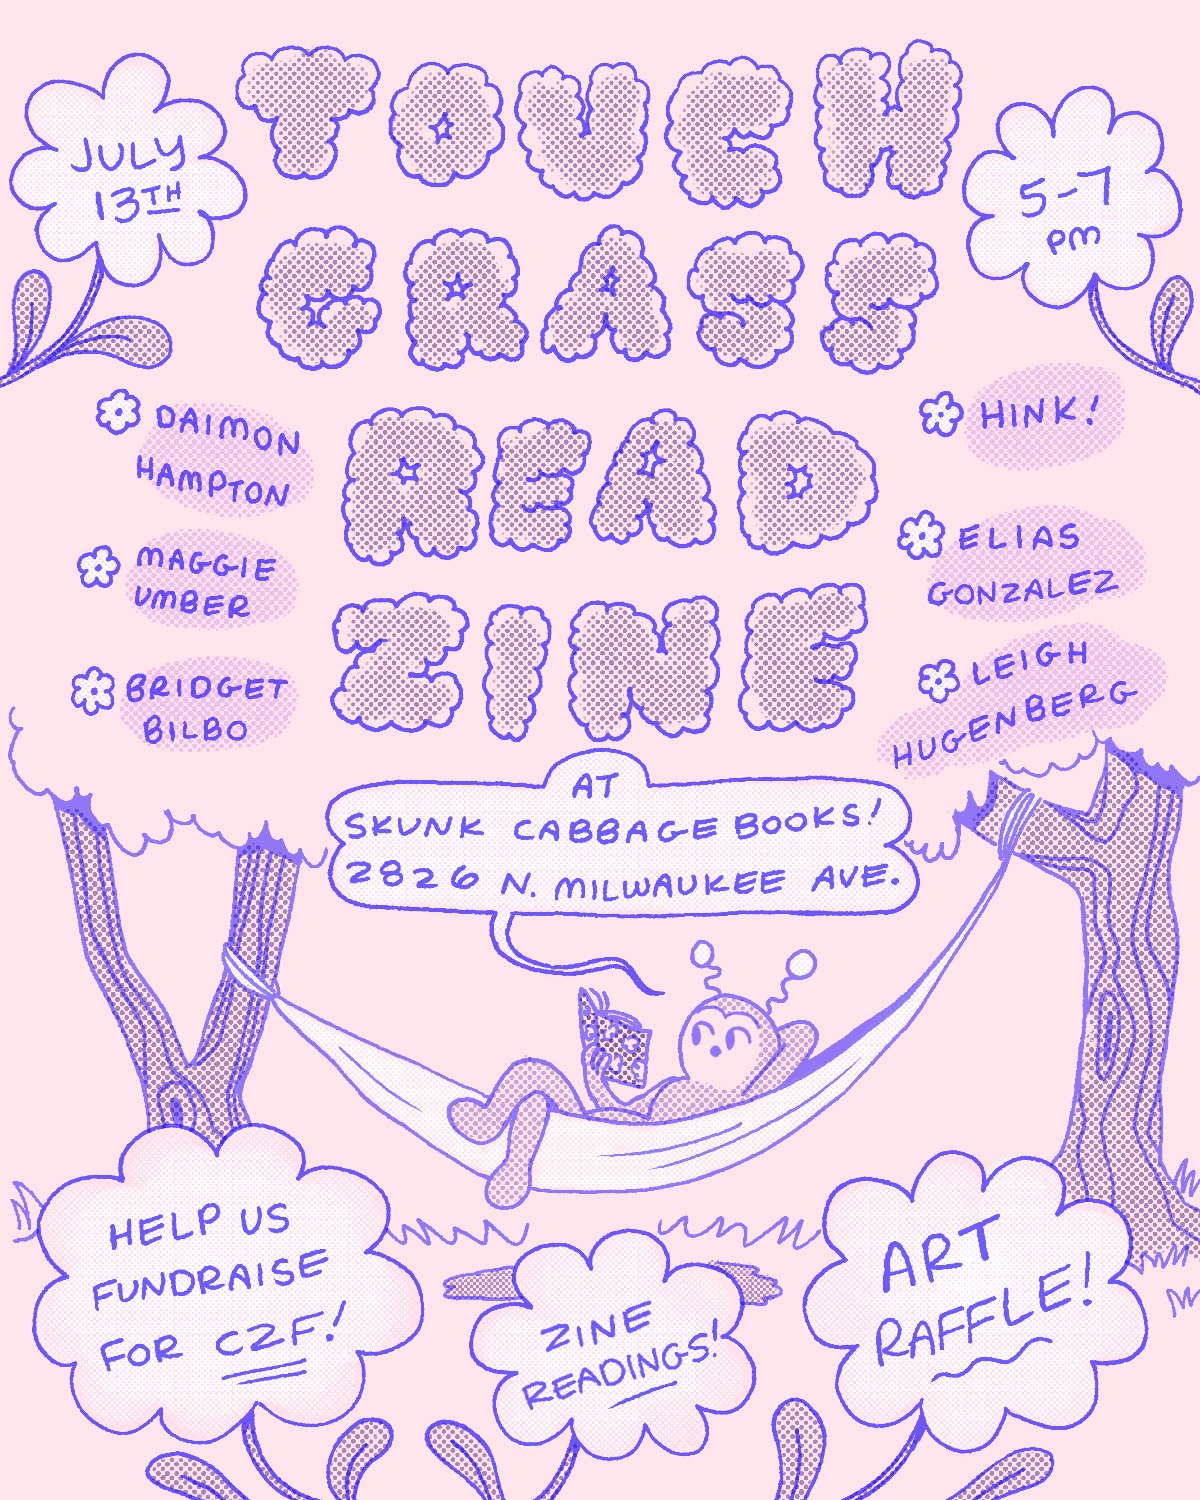 TOUCH
GRASS
READ
ZINE
JULY
13TH
5-7
PM
DAIMON
HAMPTON
MAGGIE
UMBER
BRIDGET
BILBO
HINK!
ELIAS
GONZALEZ
LEIGH
HUGENBERG
AT
SKUNK CABBAGE BOOKS!
2826 N. MILWAUKEE AVE.
HELP US
FUNDRAISE
FOR CZF!
ZINE
READINGS!
ART
RAFFLE!